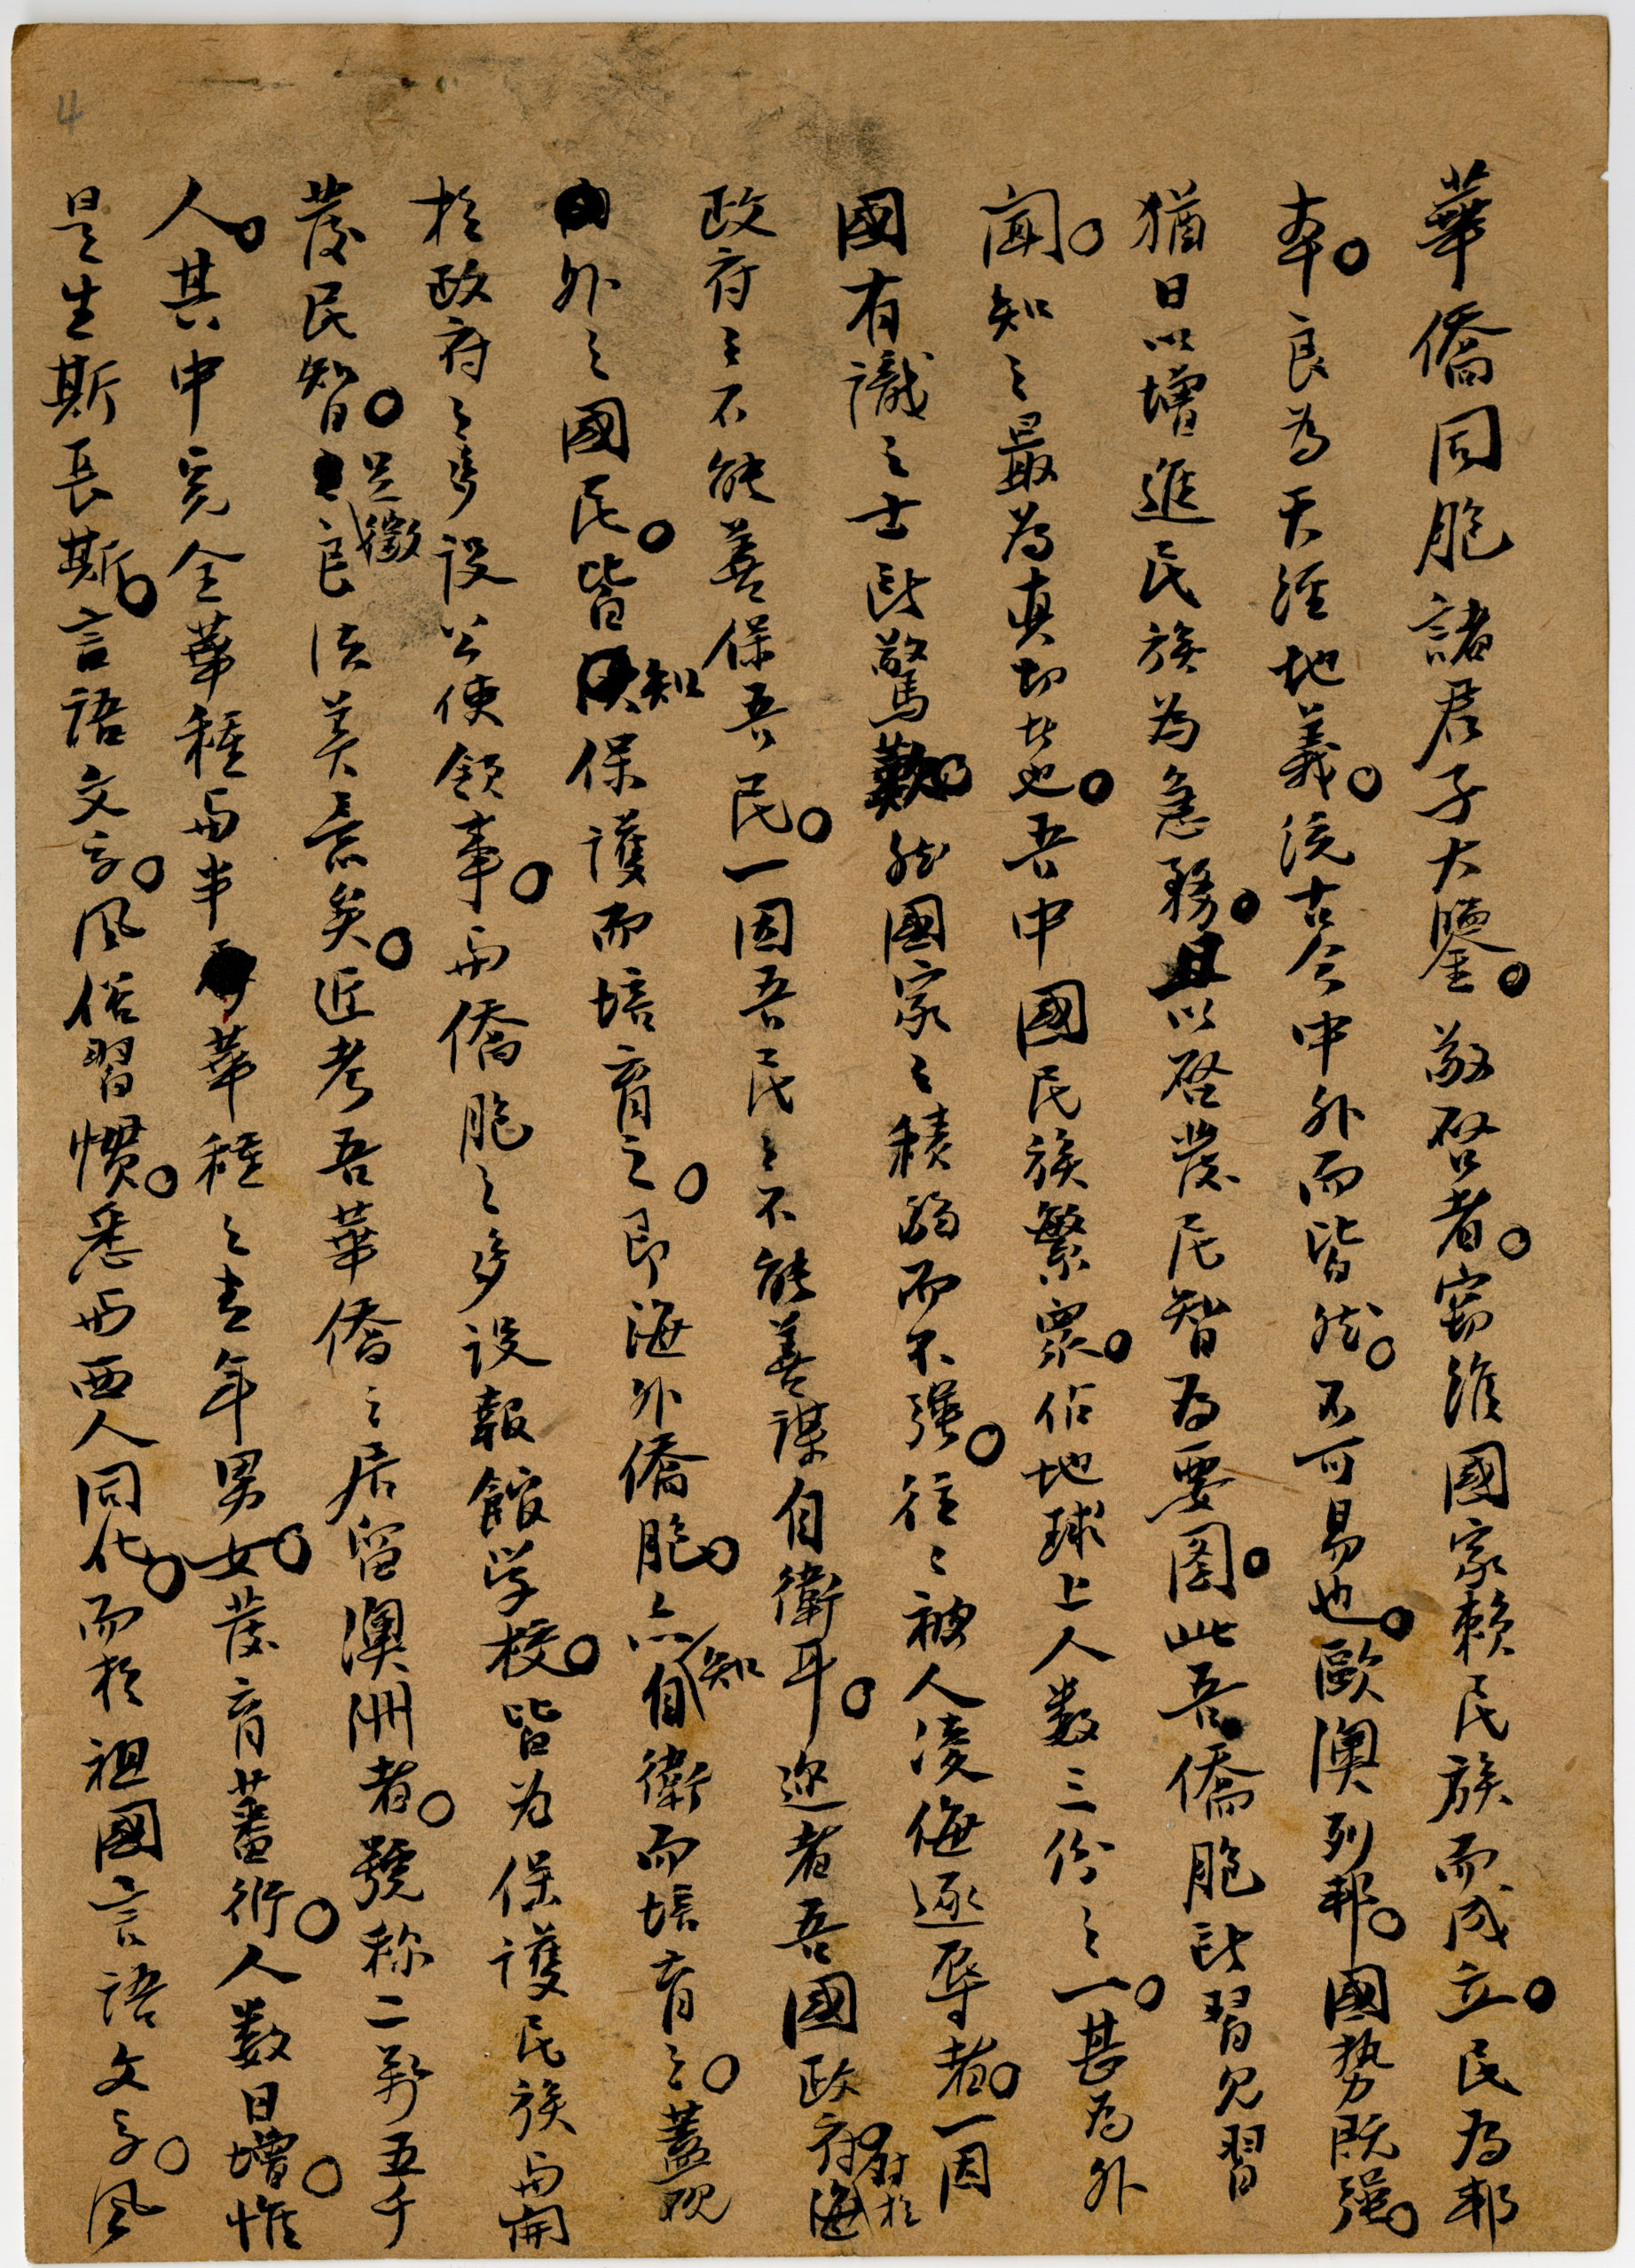 華僑同胞諸君子大鑒。敬啓者。竊維國家賴民族而成立。民為邦
本。良為天經地義。統古今中外而皆然。不可易也。歐澳列邦。國勢既强。
猶日以增進民族為急務。且以啓發民智為要圖。此吾僑胞所習見習
聞。知之最為真切者也。吾中國民族繁衆。佔地球上人数三份之一。甚為外
國有識之士所驚歎。然國家之積弱而不强。往々被人凌侮逐辱者。一因
政府之不能善保吾民。一因吾民之不能善謀自衛耳。邇者吾國政府。對於海
外之國民。皆知保護而培育之。即海外僑胞。亦知自衛而培育之。蓋觀
於政府之多設公使領事。與僑胞之多設報館学校。皆为保護民族與開
發民智。足徵良法美意矣。近考吾華僑之居留澳洲者。號称二萬五千
人。其中完全華種與半華種之青年男女。發育蕃衍。人数日增。惟
是生斯長斯。言語文字。風俗習慣。悉與西人同化。而於祖國言語文字。風
4